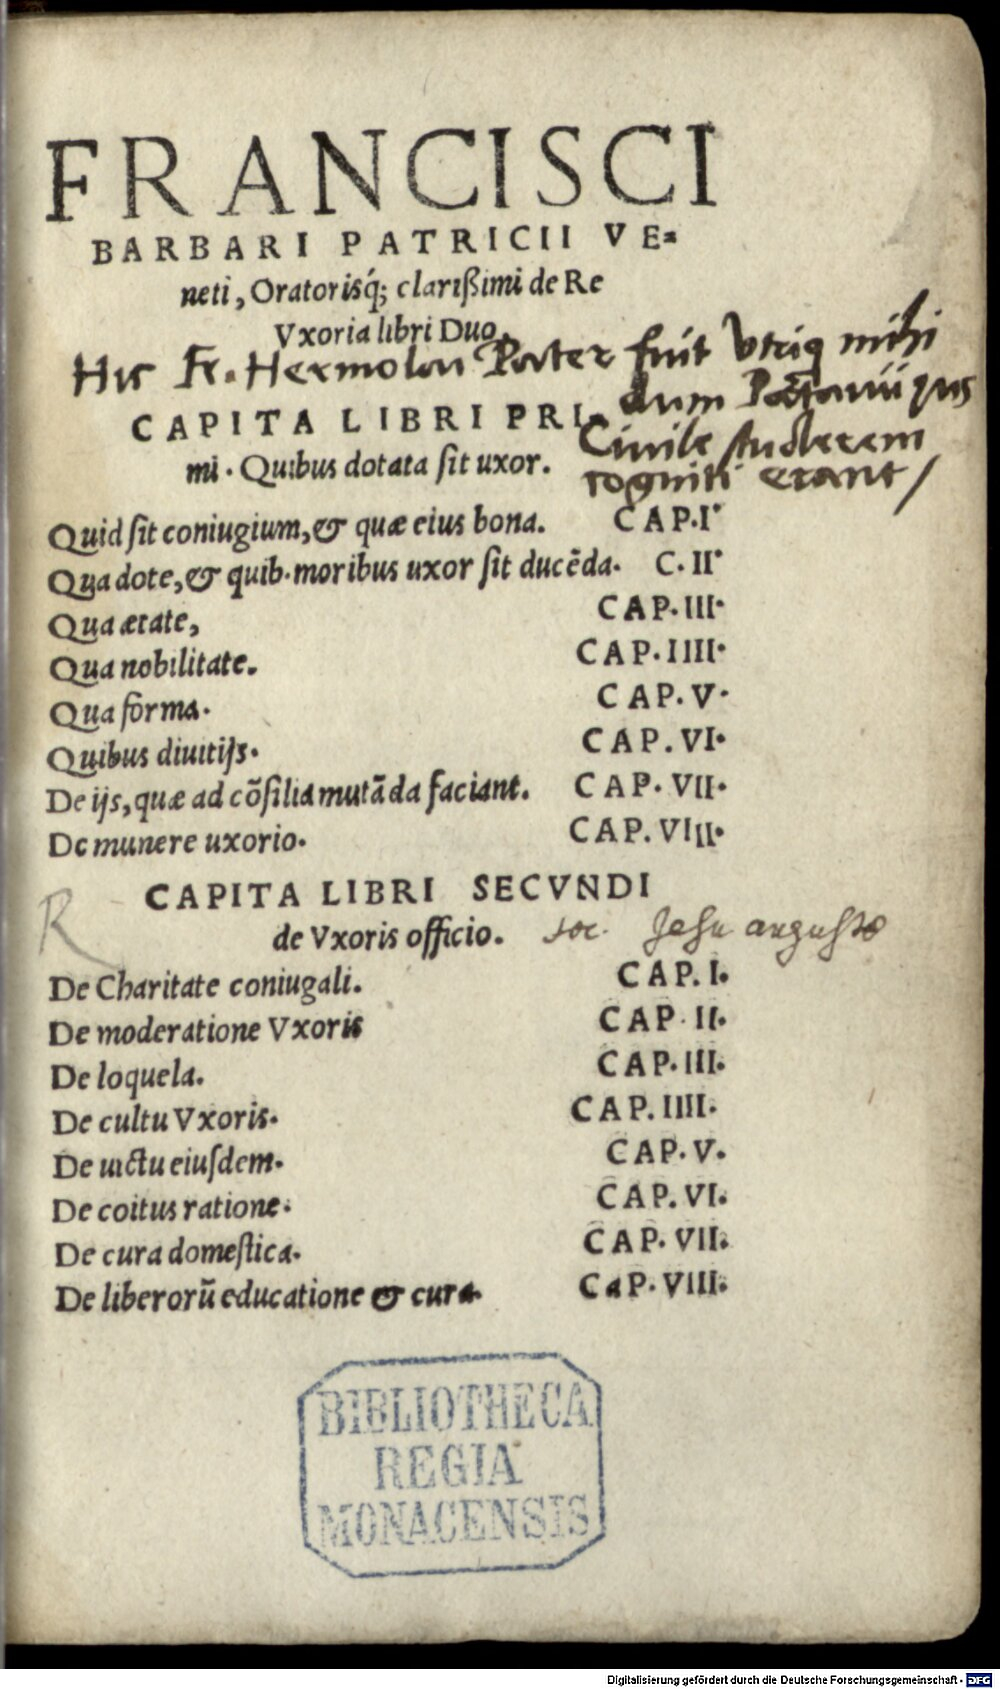 FRANCISCI
BARBARI PATRICII VE=
neti, Oratorisq́; clarißimi de Re
Vxoria libri Duo.
Hic Fr. Hermolai Pater fuit Vterq mihi
dum Patavii jus
Civile studerem
cogniti erant /
CAPITA LIBRI PRI-
mi. Quibus dotata ſit uxor.
Quid ſit coniugium, & quæ eius bona. CAP. I.
Qua dote, & quib. moribus uxor ſit ducēda. C. II.
Qua ætate, CAP. III.
Qua nobilitate. CAP. IIII.
Qua forma. CAP. V.
Quibus diuitijs. CAP. VI.
De ijs, quæ ad cōſilia mutāda faciant. CAP. VII.
De munere uxorio. CAP. VIII.
R CAPITA LIBRI SECVNDI
de Vxoris officio. Soc. Jesu augustæ
De Charitate coniugali. CAP. I.
De moderatione Vxoris CAP. II.
De loquela. CAP. III.
De cultu Vxoris. CAP. IIII.
De uictu eiuſdem. CAP. V.
De coitus ratione. CAP. VI.
De cura domeſtica. CAP. VII.
De liberorū educatione & cura. CAP. VIII.
BIBLIOTHECA
REGIA
MONACENSIS
Digitalisierung gefördert durch die Deutsche Forschungsgemeinschaft - DFG